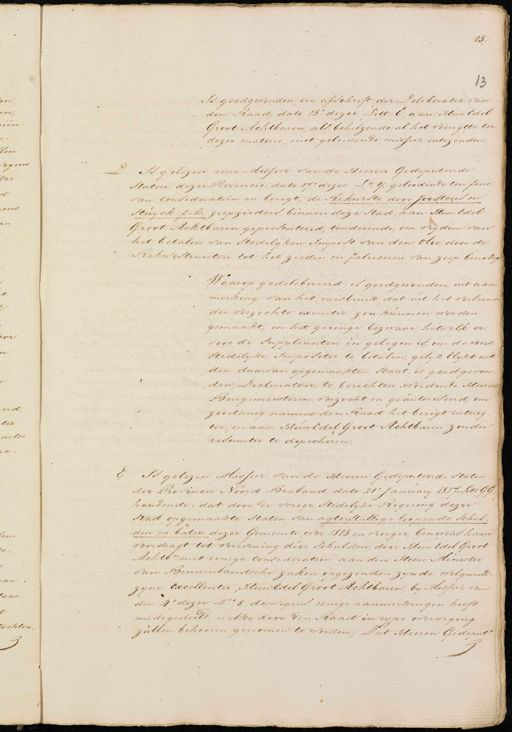 13.
13
Is goedgevonden, een afschrift der Deliberatie van
den Raad, date 15e dezer Litt E, aan Hun Edel
Groot Achtbaren, als behelzende al het verrigtte ter
dezer materie, met geleidende missive intezenden.
D Is gelezen eene Missive van de Heeren Gedeputeerde
Staten dezer Provincie, date 17e dezer geleidende ten fine
van Consideratien en berigt, de Rekweste door
zeepzieders binnen deze Stad, aan Hun Edel
Groot Achtbaren gepresenteerd, tenderende om vrijdom van
het betalen van Stedelyken Impost van den Olie door de
Rekwestranten tot het zieden en fabriceren van zeep benodigd
Waarop gedelibereerd, is goedgevonden, uit aan
merking van het misbruik dat uit het verleenen
der verzochte exemtie zou kunnen worden
gemaakt, en het geringe bezwaar hetwelk er
voor de Supplianten in gelegen is om de
Stedelyke Impositie te betalen, gelyk blykt uit
den daarvan opgemaakten Staat, is goedgevon
den, Declinatoir te berichten, wordende Heeren
Burgemeesteren verzocht en geautoriseerd, om
zoodanig namens den Raad het berigt intereg
ten, en aan Hun Edel Groot Achtbaren zonder
resumtie te depecheren.
E Is gelezen Missive van de Heeren Gedeputeerde Staten
der Provincie Noord Braband date 31e January 1817
houdende: dat door de vorige Stedelyke Regering dezer
Stad opgemaakte Staten van agterstallige loopende Schul
den en baten dezer Gemeente over 1813 en vroeger benevens haare
voordragt tot vereevening dier Schulden door Hun Edel Groot
Achtb. met eenige consideratien aan den Heere Minister
van Binnenlandsche zaken opgezonden zynde, volgens
zyne Excellentie, Hun Edel Groot Achtbaren by Missive van
den 4e dezer No 4 daaromtrent eenige aanmerkingen heeft
medegedeeld, welke door den Raad in rype overweging
zullen behooren genomen te worden; Dat Heeren Gedeputde